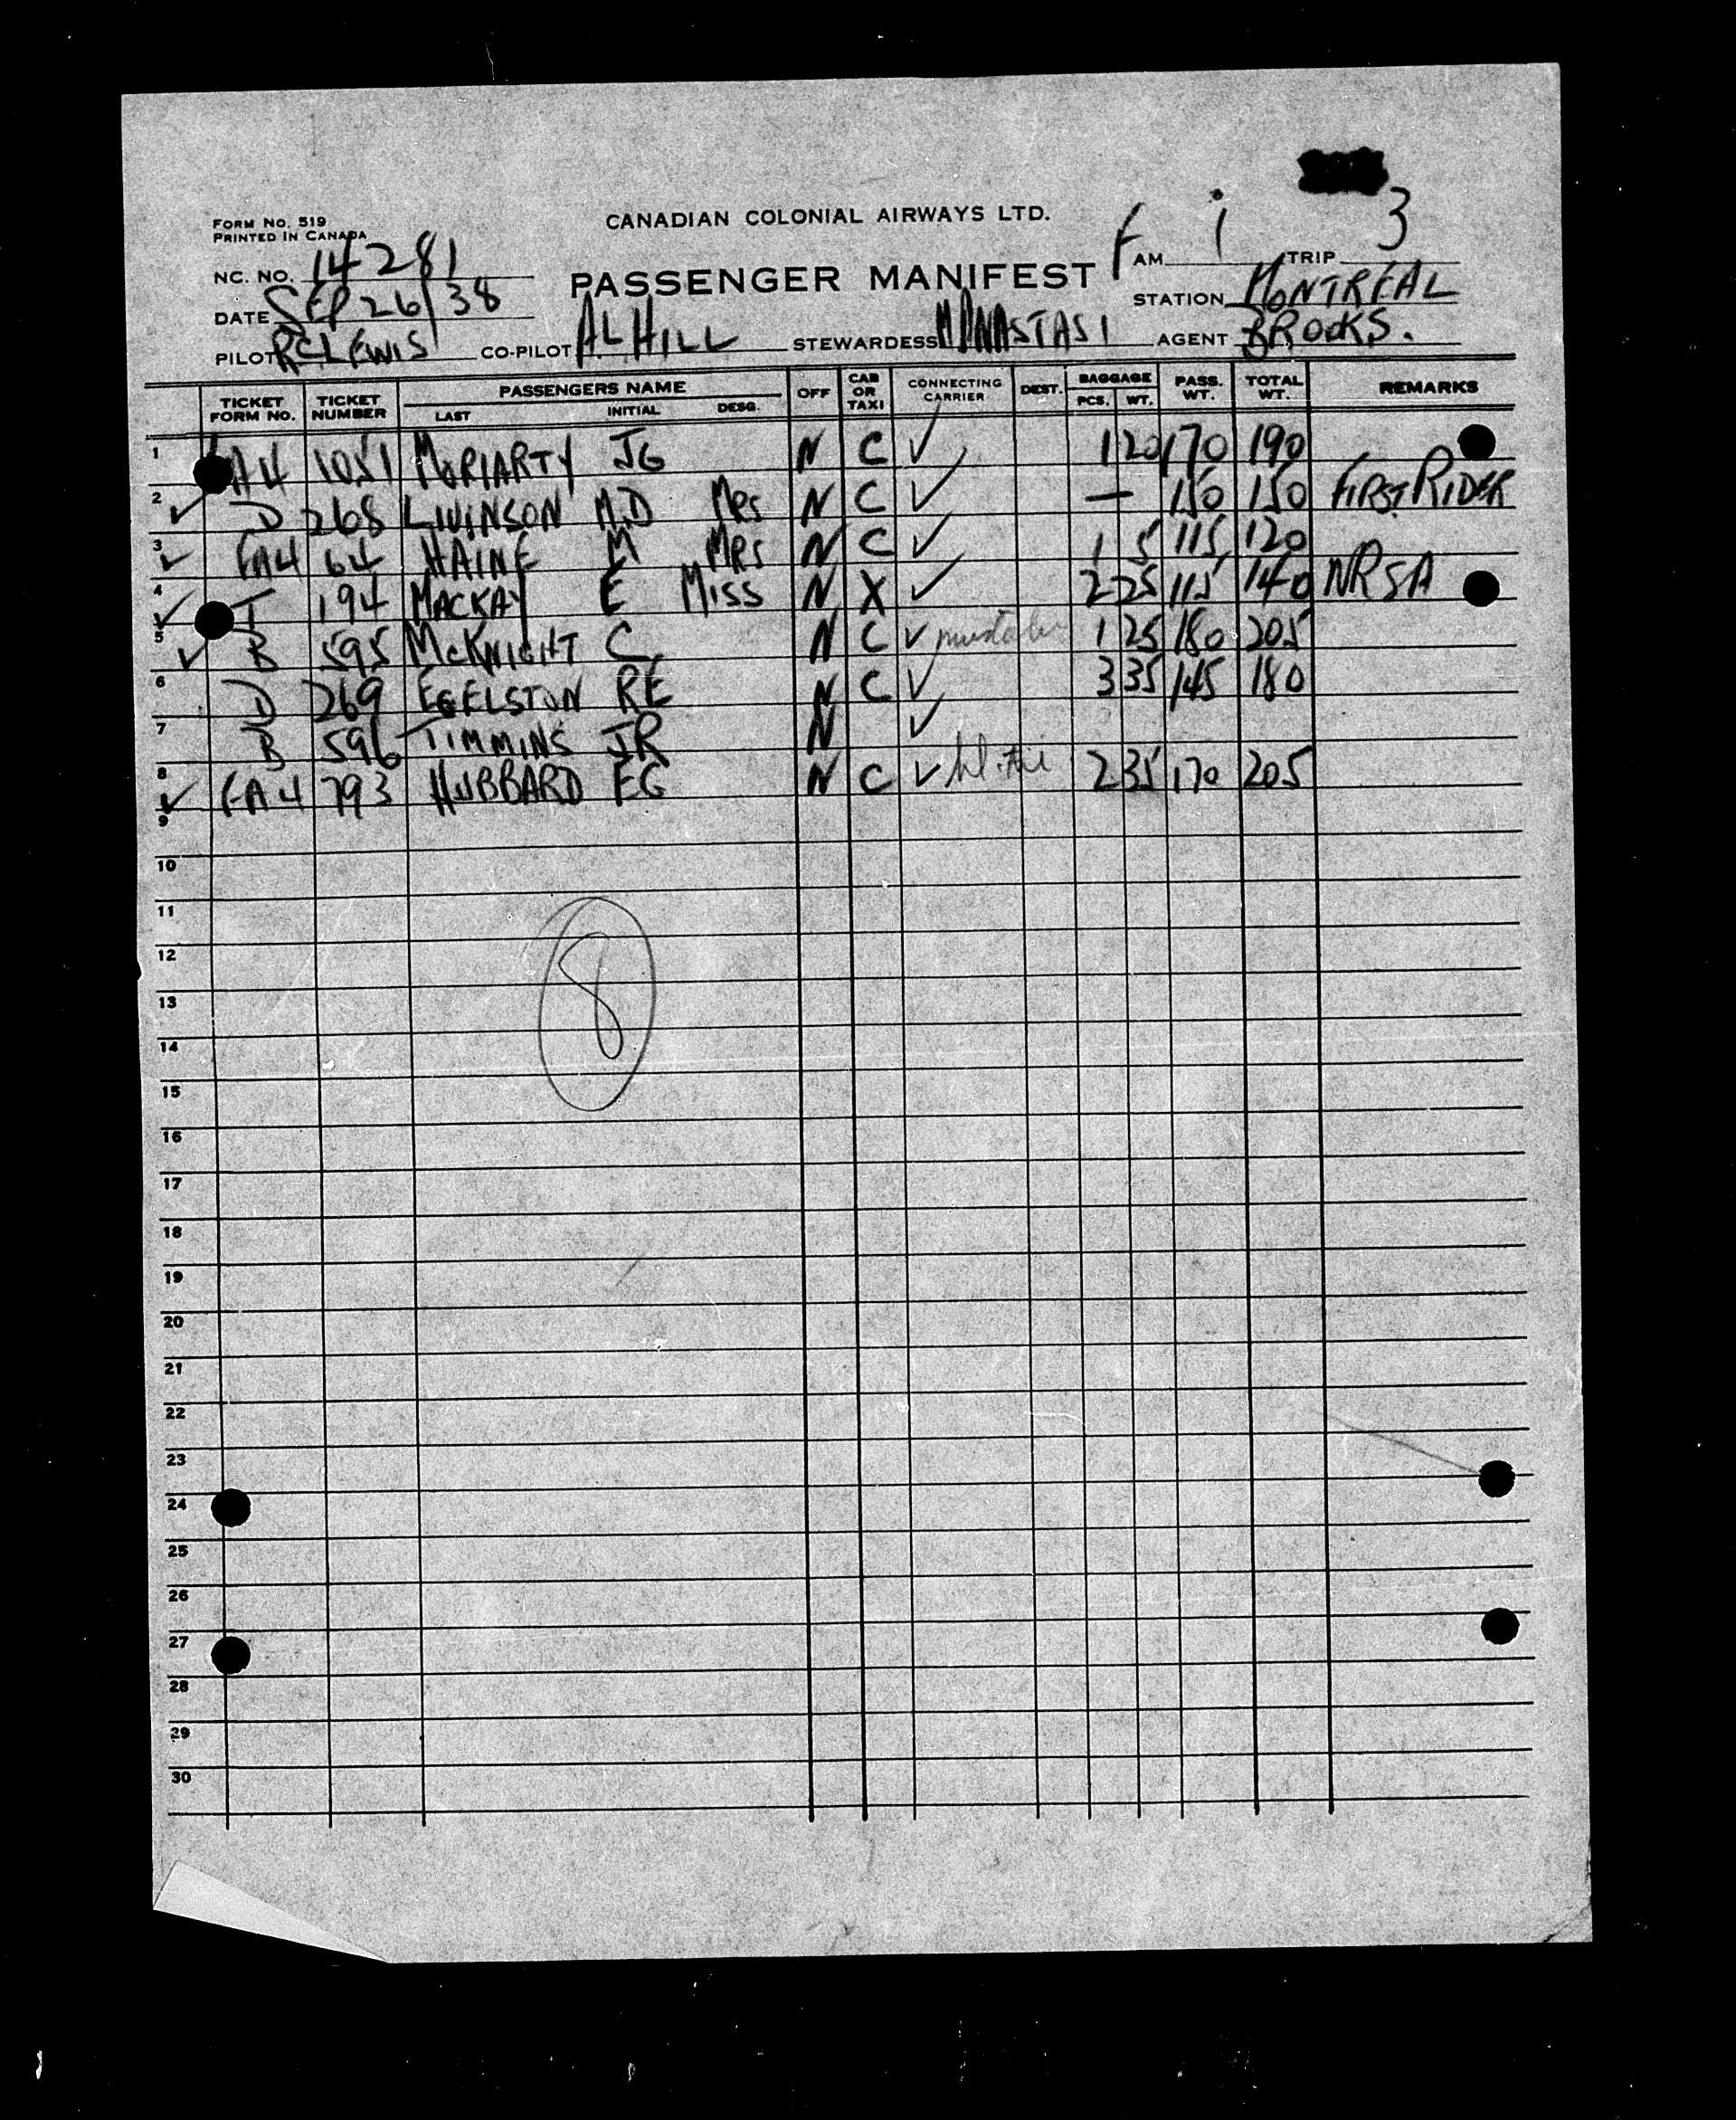 FORM NO. 519
PRINTED IN CANADA
CANADIAN COLONIAL AIRWAYS LTD.
NC. NO. 14281
PASSENGER MANIFEST
F AM 1 TRIP 3
DATE SEP 26/38
STATION MONTREAL
PILOT RC LEWIS CO-PILOT AL HILL STEWARDESS M ANASTASI AGENT BROOKS.
TICKET FORM NO. TICKET NUMBER PASSENGERS NAME LAST INITIAL DESG. OFF CAB OR TAXI CONNECTING CARRIER DEST. BAGGAGE PCS. WT. PASS. WT. TOTAL WT. REMARKS
1 FA4 1051 MORIARTY JG N C ✓ 1 20 170 190
2 ✓ D 268 LIVINSON M.D MRS N C ✓ — 150 150 FIRST RIDER
3 ✓ FA4 64 HAINE M MRS N C ✓ 1 5 115 120
4 ✓ T 194 MACKAY E MISS N X ✓ 2 25 115 140 NRSA
5 ✓ B 595 MCKNIGHT C. N C ✓ 1 25 180 205
6 D 269 EGELSTON RE N C ✓ 3 35 145 180
7 B 596 TIMMINS JR N ✓
8 ✓ FA4 793 HUBBARD EG N C ✓ 2 35 170 205
9
10
11
12
8
13
14
15
16
17
18
19
20
21
22
23
24
25
26
27
28
29
30